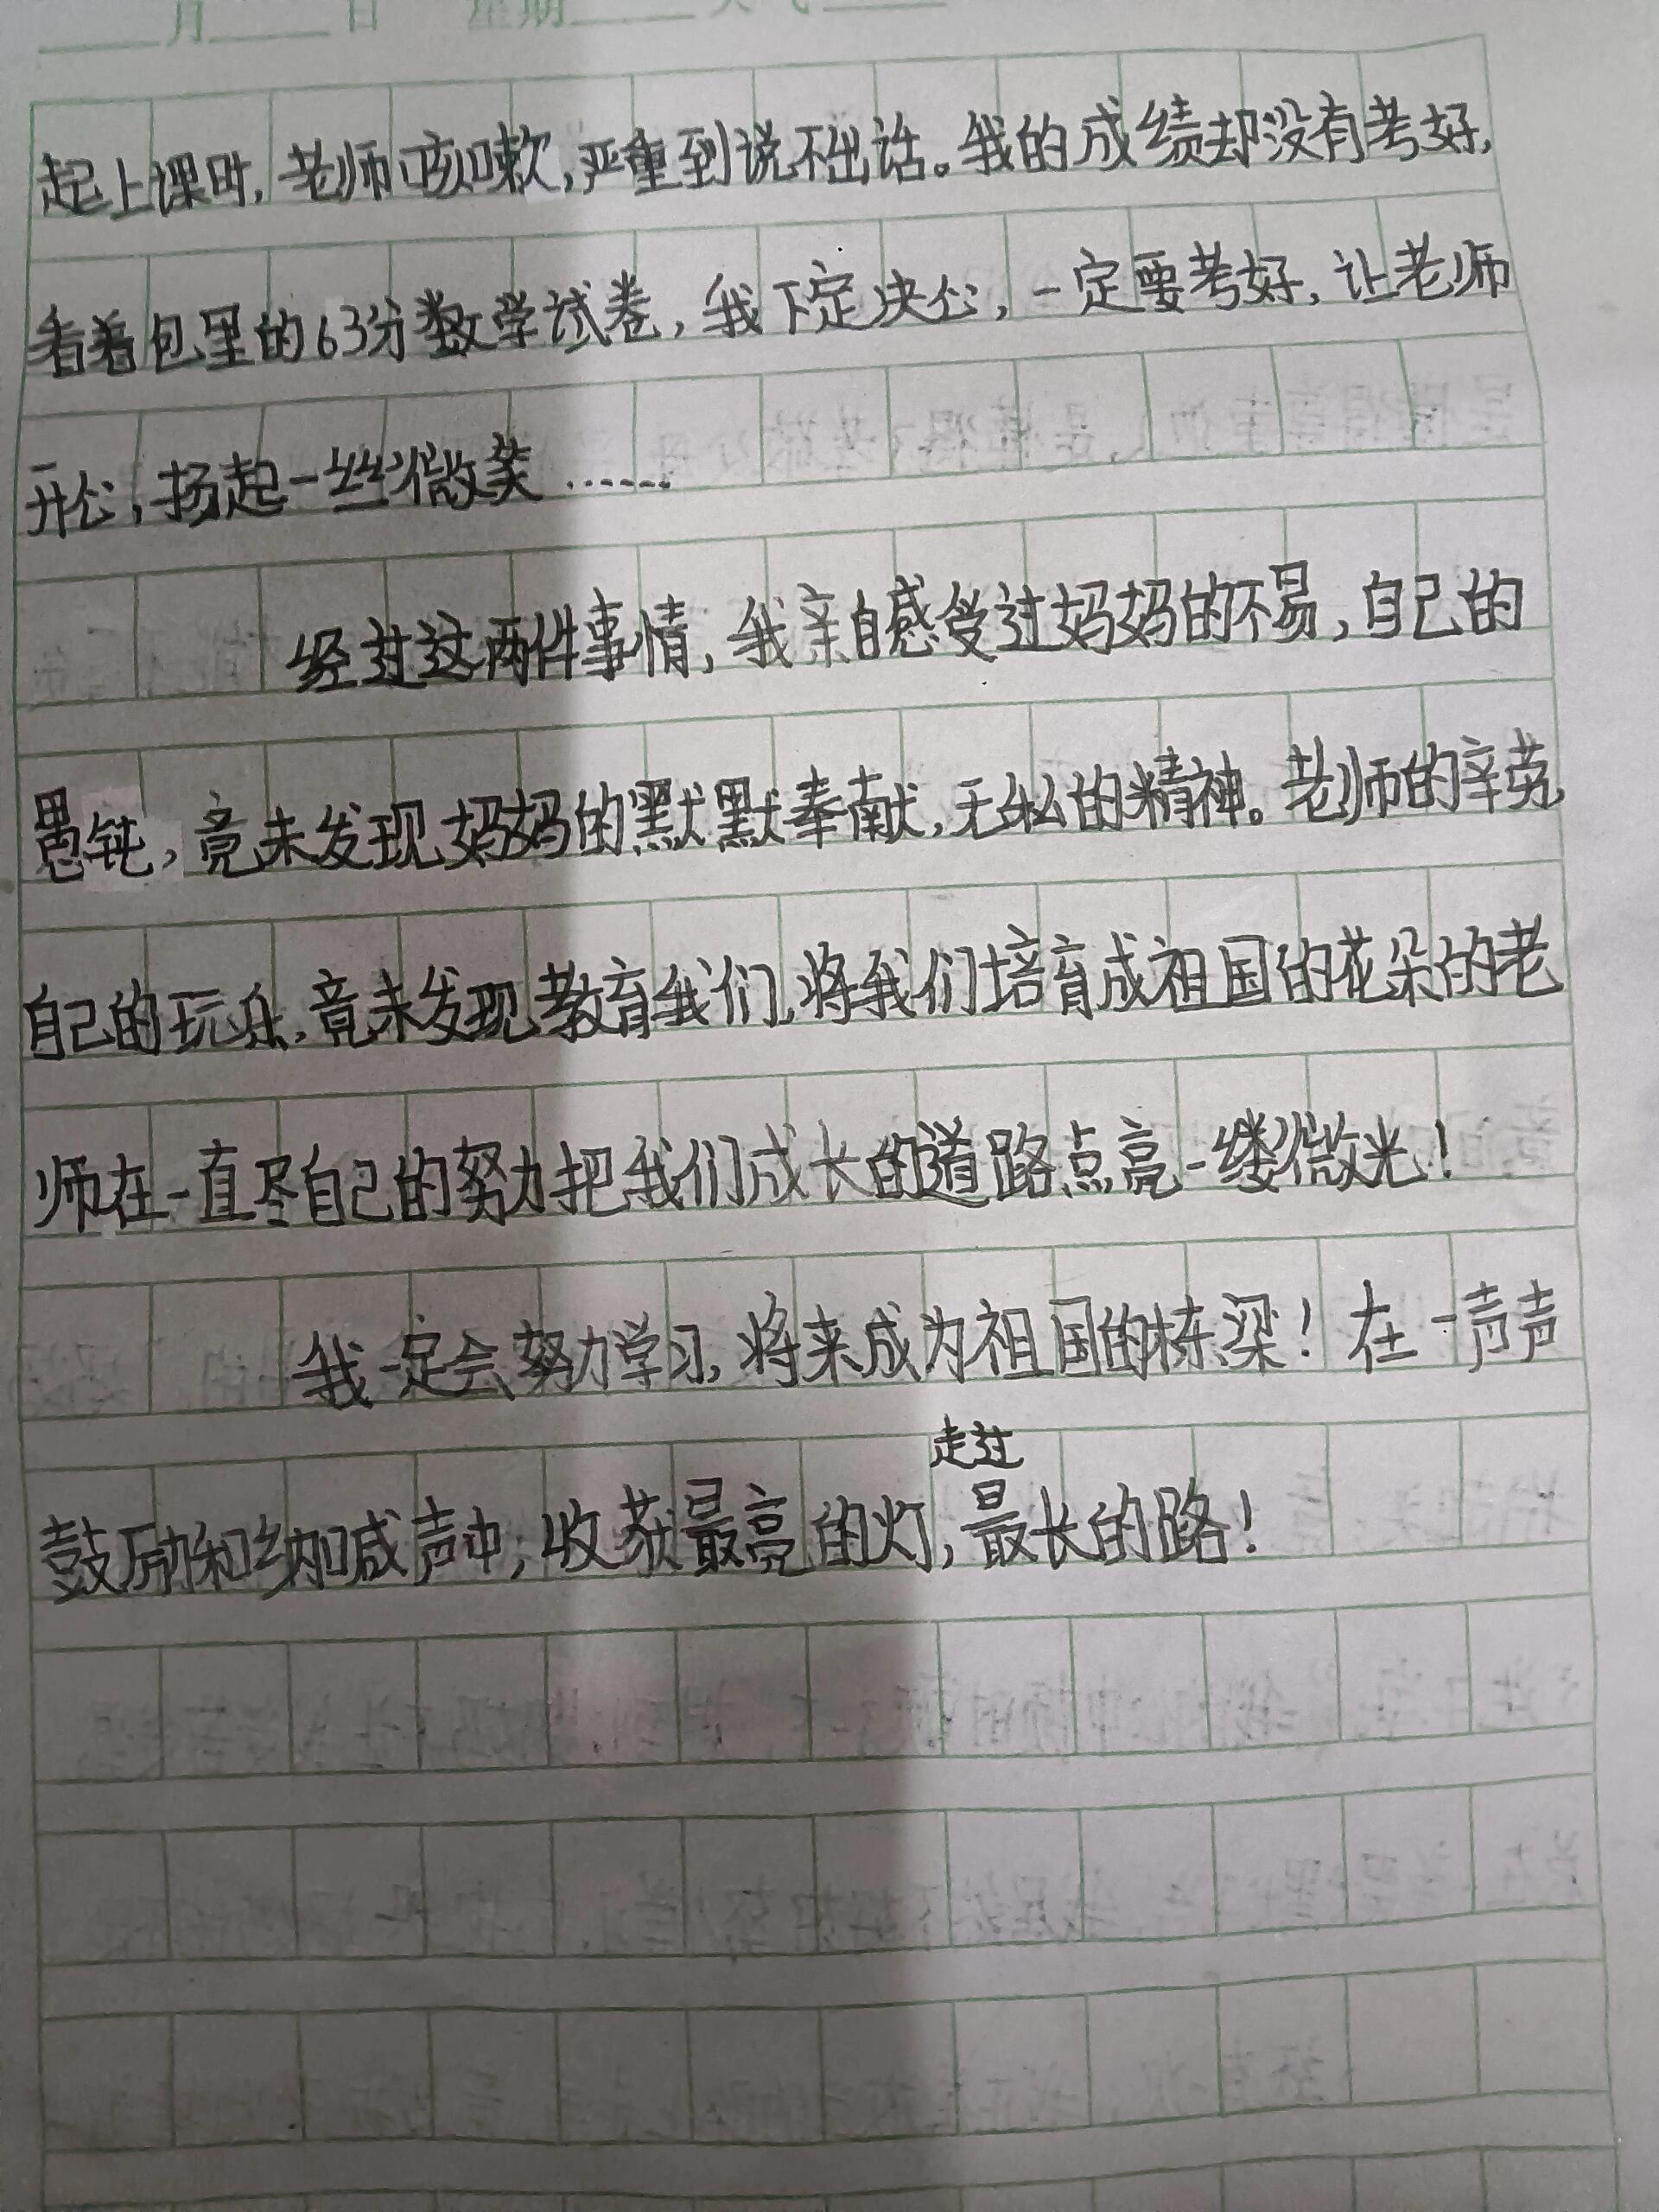 月 日 星期 天气
起上课时,老师咳嗽,严重到说不出话。我的成绩却没有考好,
看着包里的63分数学试卷,我下定决心,一定要考好,让老师
开心,扬起一丝微笑……
经过这两件事情,我亲自感受过妈妈的不易,自己的
愚钝,竟未发现妈妈的默默奉献,无私的精神。老师的辛劳,
自己的玩乐,竟未发现教育我们,将我们培育成祖国的花朵的老
师在一直尽自己的努力把我们成长的道路点亮一缕微光!
我一定会努力学习,将来成为祖国的栋梁!在一声声
走过
鼓励和呐喊声中,收获最亮的灯,最长的路!